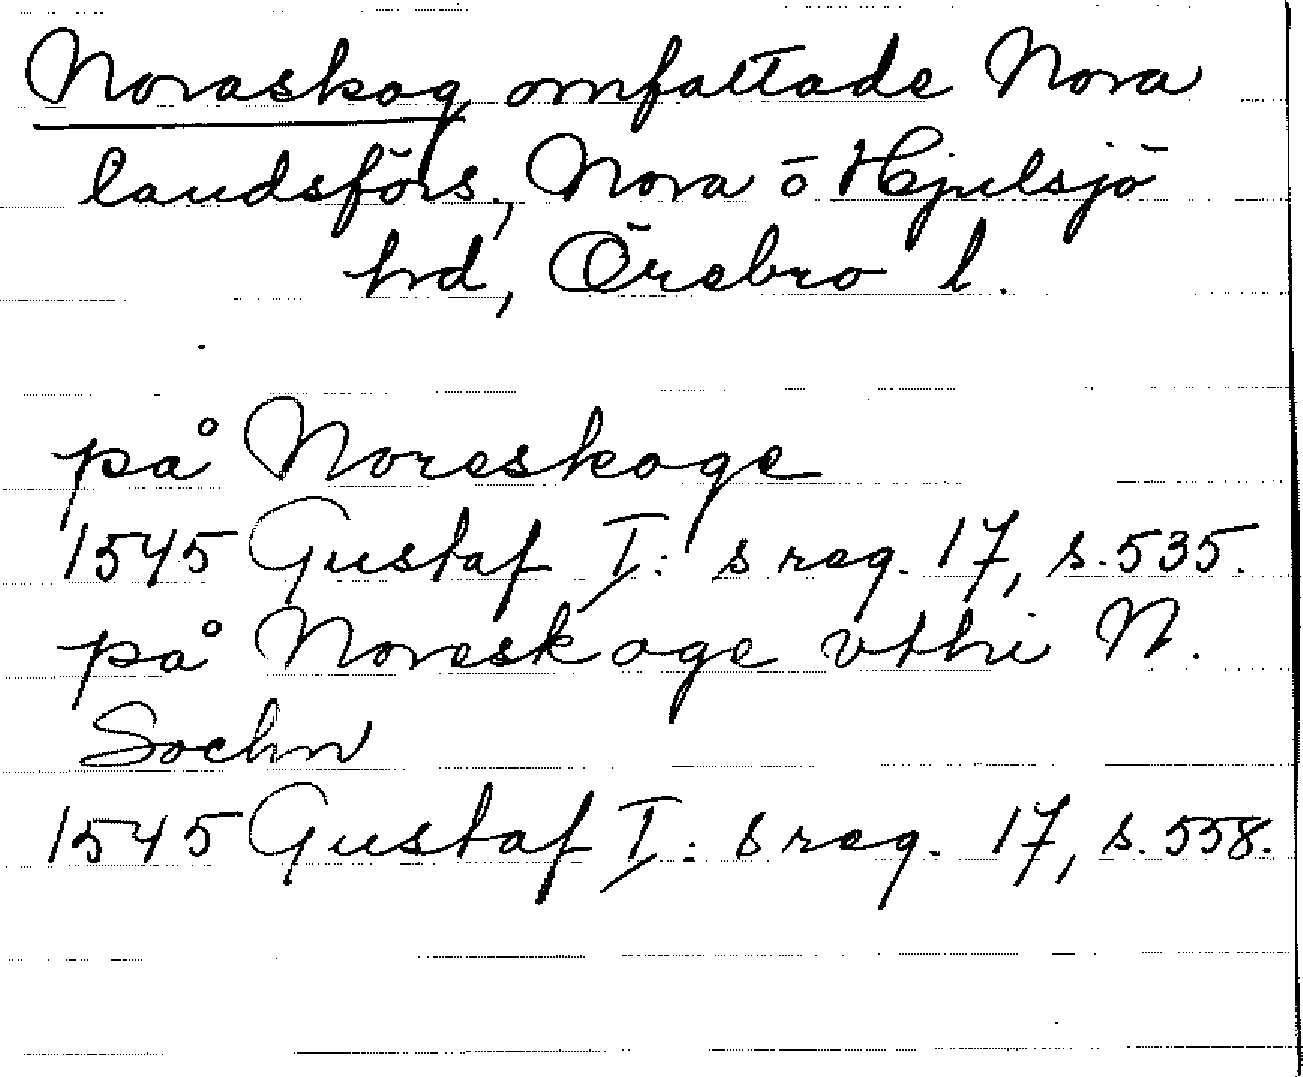 Noraskog omfattade Nora
landsförs., Nora o Hjulsjö
hrd, Örebro l.
på Noreskoge
1545 Gustaf I: s reg. 17, s. 535.
på Noreskoge vthi N.
Sochn
1545 Gustaf I: s reg. 17, s. 558.